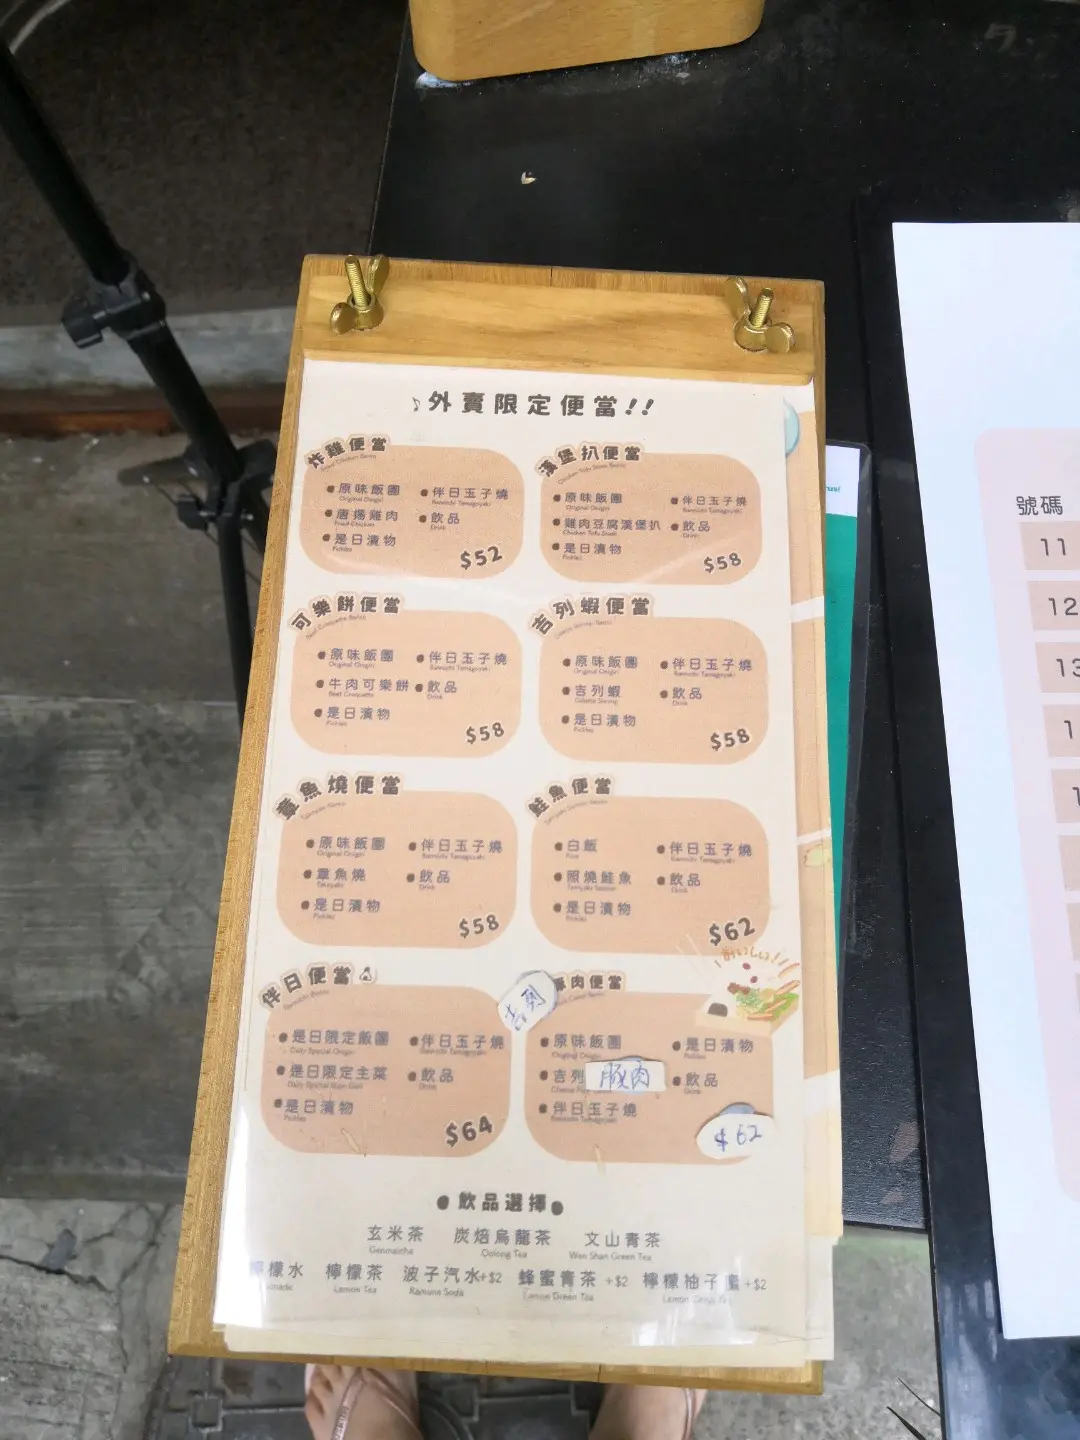 ♪外賣限定便當!!
炸雞便當
Fried Chicken Bento
原味飯團
Original Onigiri
唐揚雞肉
Fried Chicken
是日漬物
Pickles
伴日玉子燒
Bannichi Tamagoyaki
飲品
Drink
$52
漢堡扒便當
Chicken Tofu Steak Bento
原味飯團
Original Onigiri
雞肉豆腐漢堡扒
Chicken Tofu Steak
是日漬物
Pickles
伴日玉子燒
Bannichi Tamagoyaki
飲品
Drink
$58
可樂餅便當
Beef Croquette Bento
原味飯團
Original Onigiri
牛肉可樂餅
Beef Croquette
是日漬物
Pickles
伴日玉子燒
Bannichi Tamagoyaki
飲品
Drink
$58
吉列蝦便當
原味飯團
Original Onigiri
吉列蝦
是日漬物
Pickles
伴日玉子燒
Bannichi Tamagoyaki
飲品
Drink
$58
章魚燒便當
Takoyaki Bento
原味飯團
Original Onigiri
章魚燒
Takoyaki
是日漬物
Pickles
伴日玉子燒
Bannichi Tamagoyaki
飲品
Drink
$58
鮭魚便當
Teriyaki Salmon Bento
白飯
Rice
照燒鮭魚
Teriyaki Salmon
是日漬物
Pickles
伴日玉子燒
Bannichi Tamagoyaki
飲品
Drink
$62
おいしい!!
伴日便當
Bannichi Bento
是日限定飯團
Daily Special Onigiri
是日限定主菜
Daily Special Main Dish
是日漬物
Pickles
伴日玉子燒
Bannichi Tamagoyaki
飲品
Drink
$64
吉列豚肉便當
原味飯團
Original Onigiri
吉列豚肉
伴日玉子燒
Bannichi Tamagoyaki
是日漬物
Pickles
飲品
Drink
$62
飲品選擇
玄米茶 炭焙烏龍茶 文山青茶
Genmaicha Oolong Tea Wen Shan Green Tea
檬水 檸檬茶 波子汽水+$2 蜂蜜青茶 +$2 檸檬柚子蜜 +$2
Lemon Tea Ramune Soda Lemon Green Tea
號碼
11
12